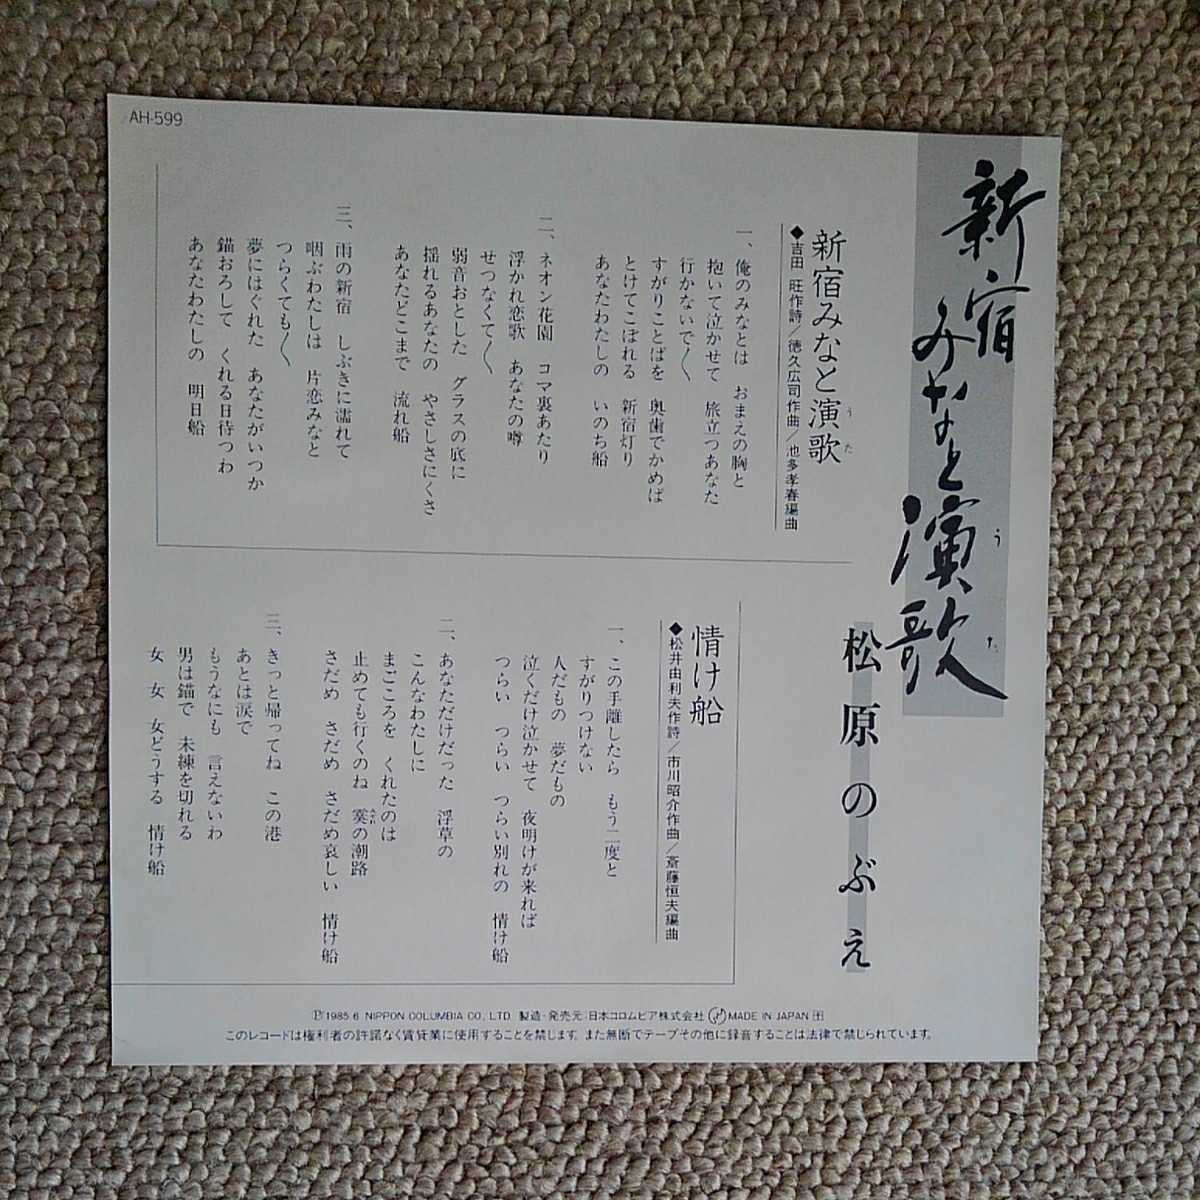 AH-599
新宿みなと演歌
うた
松原のぶえ
新宿みなと演歌
うた
◆吉田 旺作詩/徳久広司作曲/池多孝春編曲
一、俺のみなとは おまえの胸と
抱いて泣かせて 旅立つあなた
行かないで〱
すがりことばを 奥歯でかめば
とけてこぼれる 新宿灯り
あなたわたしの いのち船
二、ネオン花園 コマ裏あたり
浮かれ恋歌 あなたの噂
せつなくて〱
弱音おとした グラスの底に
揺れるあなたの やさしさにくさ
あなたどこまで 流れ船
三、雨の新宿 しぶきに濡れて
咽ぶわたしは 片恋みなと
つらくても〱
夢にはぐれた あなたがいつか
錨おろして くれる日待つわ
あなたわたしの 明日船
情け船
◆松井由利夫作詩/市川昭介作曲/斎藤恒夫編曲
一、この手離したら もう二度と
すがりつけない
人だもの 夢だもの
泣くだけ泣かせて 夜明けが来れば
つらい つらい つらい別れの 情け船
二、あなただけだった 浮草の
こんなわたしに
まごころを くれたのは
止めても行くのね の潮路
さだめ さだめ さだめ哀しい 情け船
三、きっと帰ってね この港
あとは涙で
もうなにも 言えないわ
男は錨で 未練を切れる
女 女 女どうする 情け船
Ⓟ1985・6 NIPPON COLUMBIA CO., LTD. 製造・発売元/日本コロムビア株式会社 MADE IN JAPAN
このレコードは権利者の許諾なく賃貸業に使用することを禁じます。また無断でテープその他に録音することは法律で禁じられています。